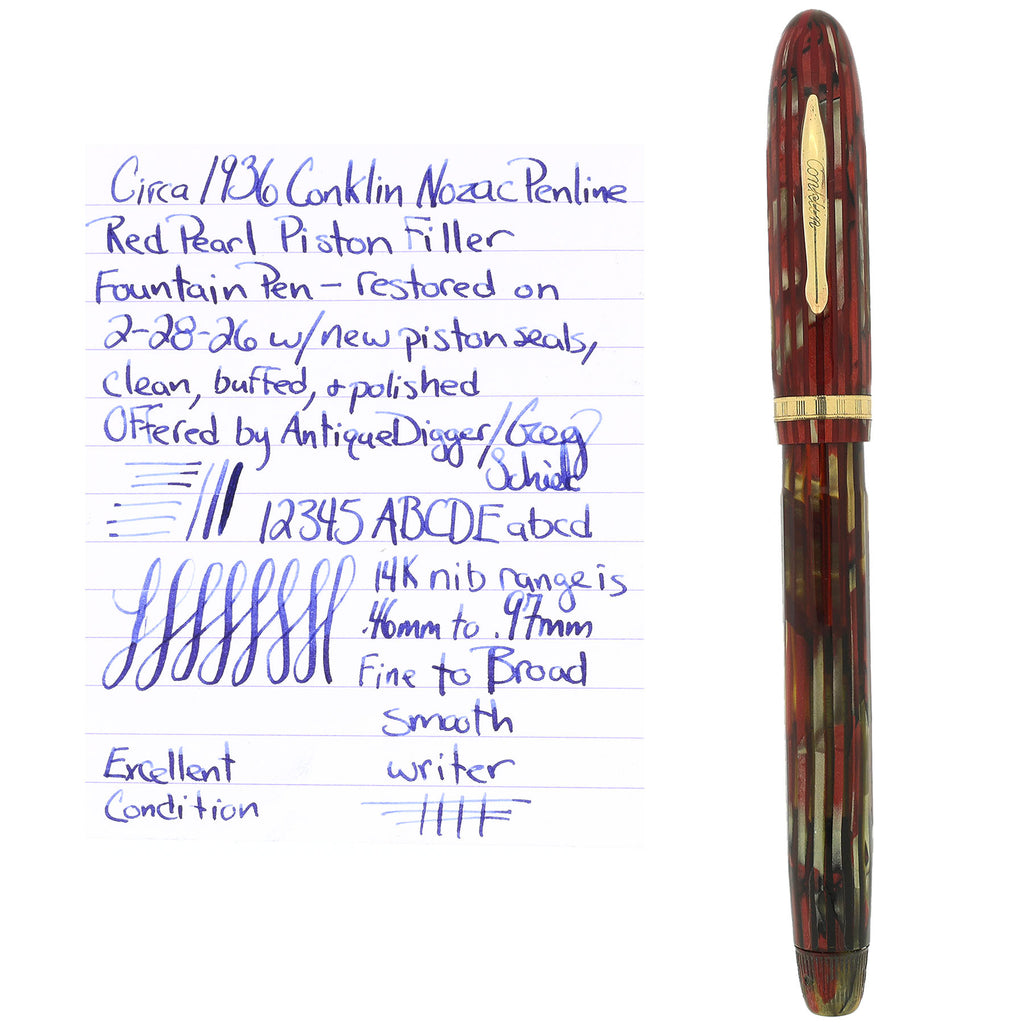 Circa 1936 Conklin Nozac Penline
Red Pearl Piston Filler
Fountain Pen - restored on
2-28-26 w/new piston seals,
clean, buffed, & polished
Offered by AntiqueDigger/Greg
12345 ABCDE abcd
14K nib range is
.46mm to .97mm
Fine to Broad
smooth
writer
Excellent
Condition
Conklin